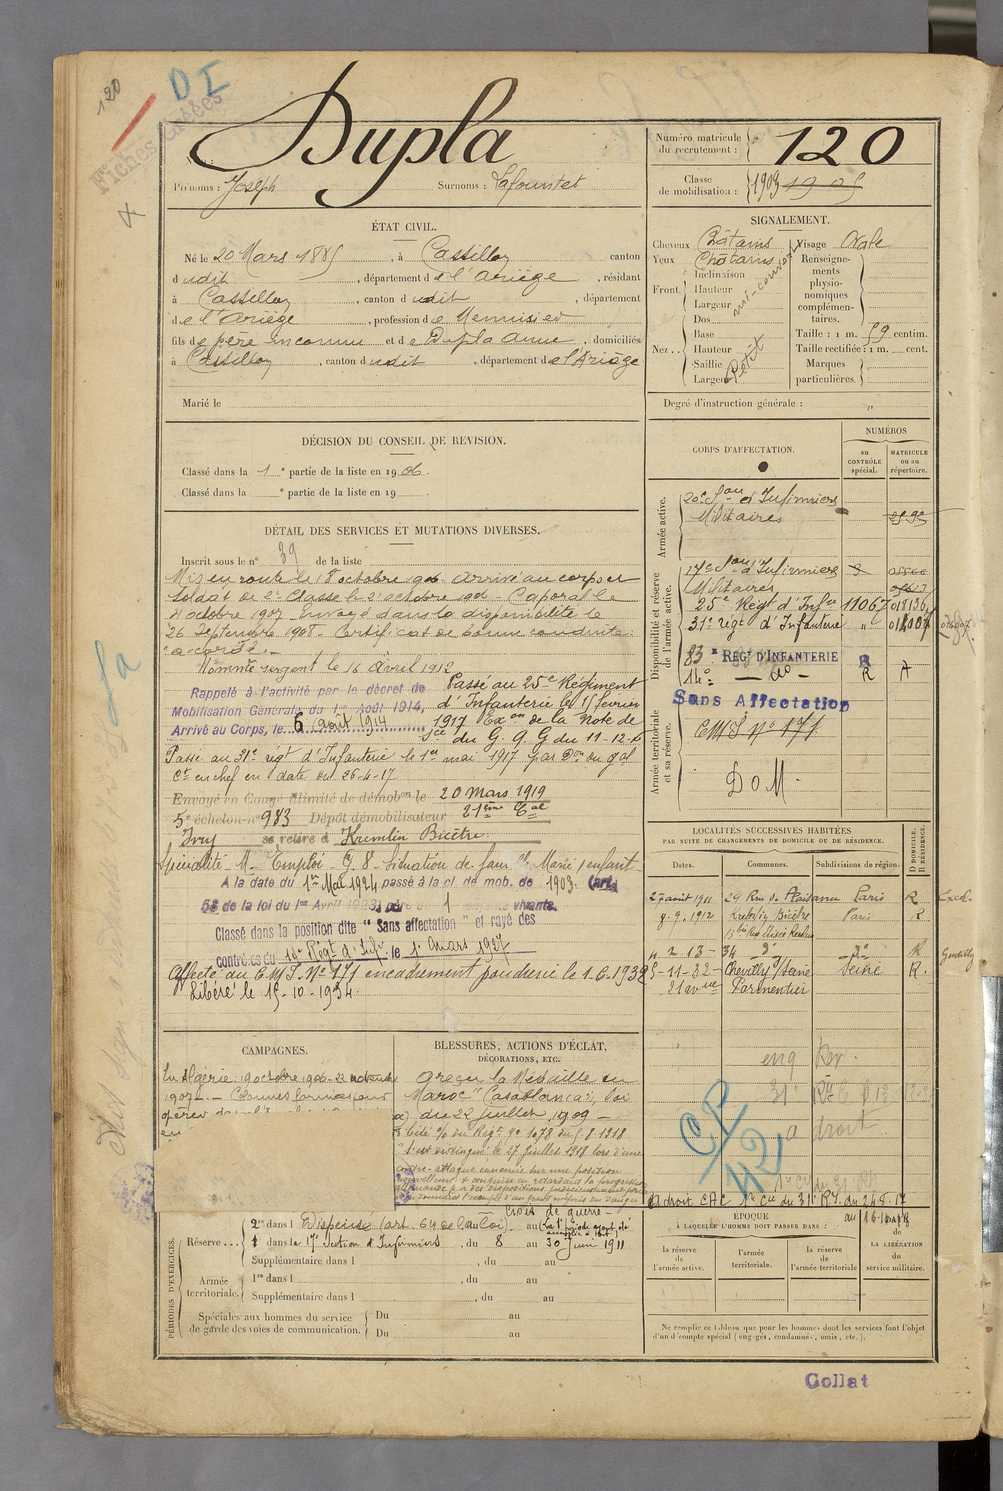 120
DI
Fiches
Dupla
Prénoms : Joseph Surnoms : Lafountet
Numéro matricule du recrutement : 120
Classe de mobilisation : 1903 1905
ÉTAT CIVIL.
Né le 20 Mars 1885, à Castillon canton
dudit, département de l'Ariège, résidant
à Castillon, canton dudit, département
de l'Ariège, profession de Menuisier
fils de père inconnu et de Dupla Anne, domiciliés
à Castillon, canton dudit, département de l'Ariège
Marié le
SIGNALEMENT.
Cheveux Châtains Visage Ovale
Yeux Châtains
Front. Inclinaison
Hauteur
Largeur
Nez.. Dos
Base
Hauteur
Saillie
Largeur
Petit
Renseignements physionomiques complémentaires.
Taille : 1 m. 59 centim.
Taille rectifiée : 1 m. cent.
Marques particulières.
Degré d'instruction générale : "
DÉCISION DU CONSEIL DE REVISION.
Classé dans la 1e partie de la liste en 1906.
Classé dans la e partie de la liste en 19
CORPS D'AFFECTATION.
NUMÉROS
au CONTRÔLE spécial.
MATRICULE ou au répertoire.
Armée active.
20e Son d'Infirmiers
Militaires
Disponibilité et réserve de l'armée active.
17e Son d'Infirmiers
Militaires
25e Régt d'Infie 11067
31e régt d'Infanterie "
83e RÉGt D'INFANTERIE
14e — do — R A
Sans Affectation
Armée territoriale et sa réserve.
CMS No 171
DOM.
DÉTAIL DES SERVICES ET MUTATIONS DIVERSES.
Inscrit sous le n° 39 de la liste
Mis en route le 8 octobre 1906. Arrivé au corps et
Soldat de 2e Classe le octobre 1906. Caporal le
octobre 1907. Envoyé dans la disponibilité le
26 Septembre 1908. Certificat de bonne conduite :
"accordé".
Nommé sergent le 16 Avril 1912
Rappelé à l'activité par le décret de
Mobilisation Générale du 1er Août 1914,
Arrivé au Corps, le 6 août 1914
Passé au 25e Régiment
d'Infanterie le 15 février
1917 Exon de la Note de
Sce du G. Q G du 11-12-16
Passé au 31e régt d'Infanterie le 1er mai 1917 par Don du gal
Ct en chef en date du 26-4-17
Envoyé en Congé illimité de démobon le 20 mars 1919
5e échelon n° 983 Dépôt démobilisateur 21ème Cal
Ivry se retire à Kremlin Bicêtre.
Spécialité M- Emploi G. 8- Situation de famille Marié 1 enfant
A la date du 1er Mai 1924 passé à la cl. de mob. de 1903. (art
58 de la loi du 1er Avril 1923) père de 1 enfants vivants.
Classé dans la position dite "Sans affectation" et rayé des
contrôles du 14e Régt d'Inf. le 1er Mars 1927
Affecté au CMS. No 171 encadrement poudrerie le 1.6.1932
Libéré le 15-10-1934
LOCALITÉS SUCCESSIVES HABITÉES
PAR SUITE DE CHANGEMENTS DE DOMICILE OU DE RÉSIDENCE.
Dates. Communes. Subdivisions de région. D DOMICILE. R RÉSIDENCE.
27 août 1911 29 Rue de Plaisance Paris R
9.9.1912 Kremlin Bicêtre Paris R
13 bis Rue Elisée Reclus
2 13- 34 do do R Gentilly
5-11-32- Chevilly s/ Seine Seine R.
21 avenue Parmentier
CP/42
a droit
à droit CAC 1re cie du 31e RI. du 24-5-17
au 16-1
CAMPAGNES.
En Algérie : 19 octobre 1906-
1907. — Colonnes formées pour
opérer
BLESSURES, ACTIONS D'ÉCLAT,
DÉCORATIONS, ETC.
A reçu la Médaille du
Maroc "Casablanca", loi
du 22 juillet 1909 —
Cité O/ du Régt no 1078 du 1.8.1918
"S'est distingué le 27 juillet 1918 lors d'une
contre-attaque ennemie sur une position
nouvellement conquise en retardant la progression
allemande par des dispositions judicieusement prises
Croix de guerre —
PÉRIODES D'EXERCICES.
Réserve... 2e dans l Dispensé (art. 64 de la loi). au
1 dans la 17e Section d'Infirmiers, du 8 au 30 Juin 1911
Supplémentaire dans l , du au
Armée territoriale. 1re dans l , du au
Supplémentaire dans l , du au
Spéciales aux hommes du service de garde des voies de communication. Du au
Du au
ÉPOQUE
À LAQUELLE L'HOMME DOIT PASSER DANS :
la réserve de l'armée active.
l'armée territoriale.
la réserve de l'armée territoriale
DATE de LA LIBÉRATION du service militaire.
Ne remplir ce tableau que pour les hommes dont les services font l'objet
d'un décompte spécial (engagés, condamnés, omis, etc.).
Collat